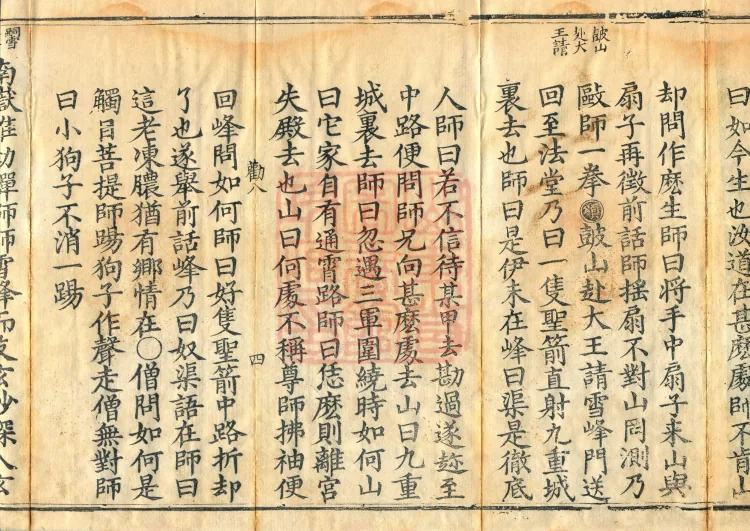 曰如今生也汝道在甚麽處師不肯山
却問作麽生師曰將手中扇子来山與
扇子再徵前話師揺扇不對山罔測乃
皷山
赴大
王請
毆師一拳皷山赴大王請雪峰門送
回至法堂乃曰一隻聖箭直射九重城
裏去也師曰是伊未在峰曰渠是徹底
人師曰若不信待某甲去勘過遂趂至
中路便問師兄向甚麽處去山曰九重
城裏去師曰忽遇三軍圍繞時如何山
曰它家自有通霄路師曰恁麽則離宫
失殿去也山曰何處不稱尊師拂袖便
勸八 四
回峰問如何師曰好隻聖箭中路折却
了也遂舉前話峰乃曰奴渠語在師曰
這老凍膿猶有鄉情在〇僧問如何是
觸目菩提師踢狗子作聲走僧無對師
曰小狗子不消一踢
南嶽惟勁禪師師雪峰而友玄沙深入玄